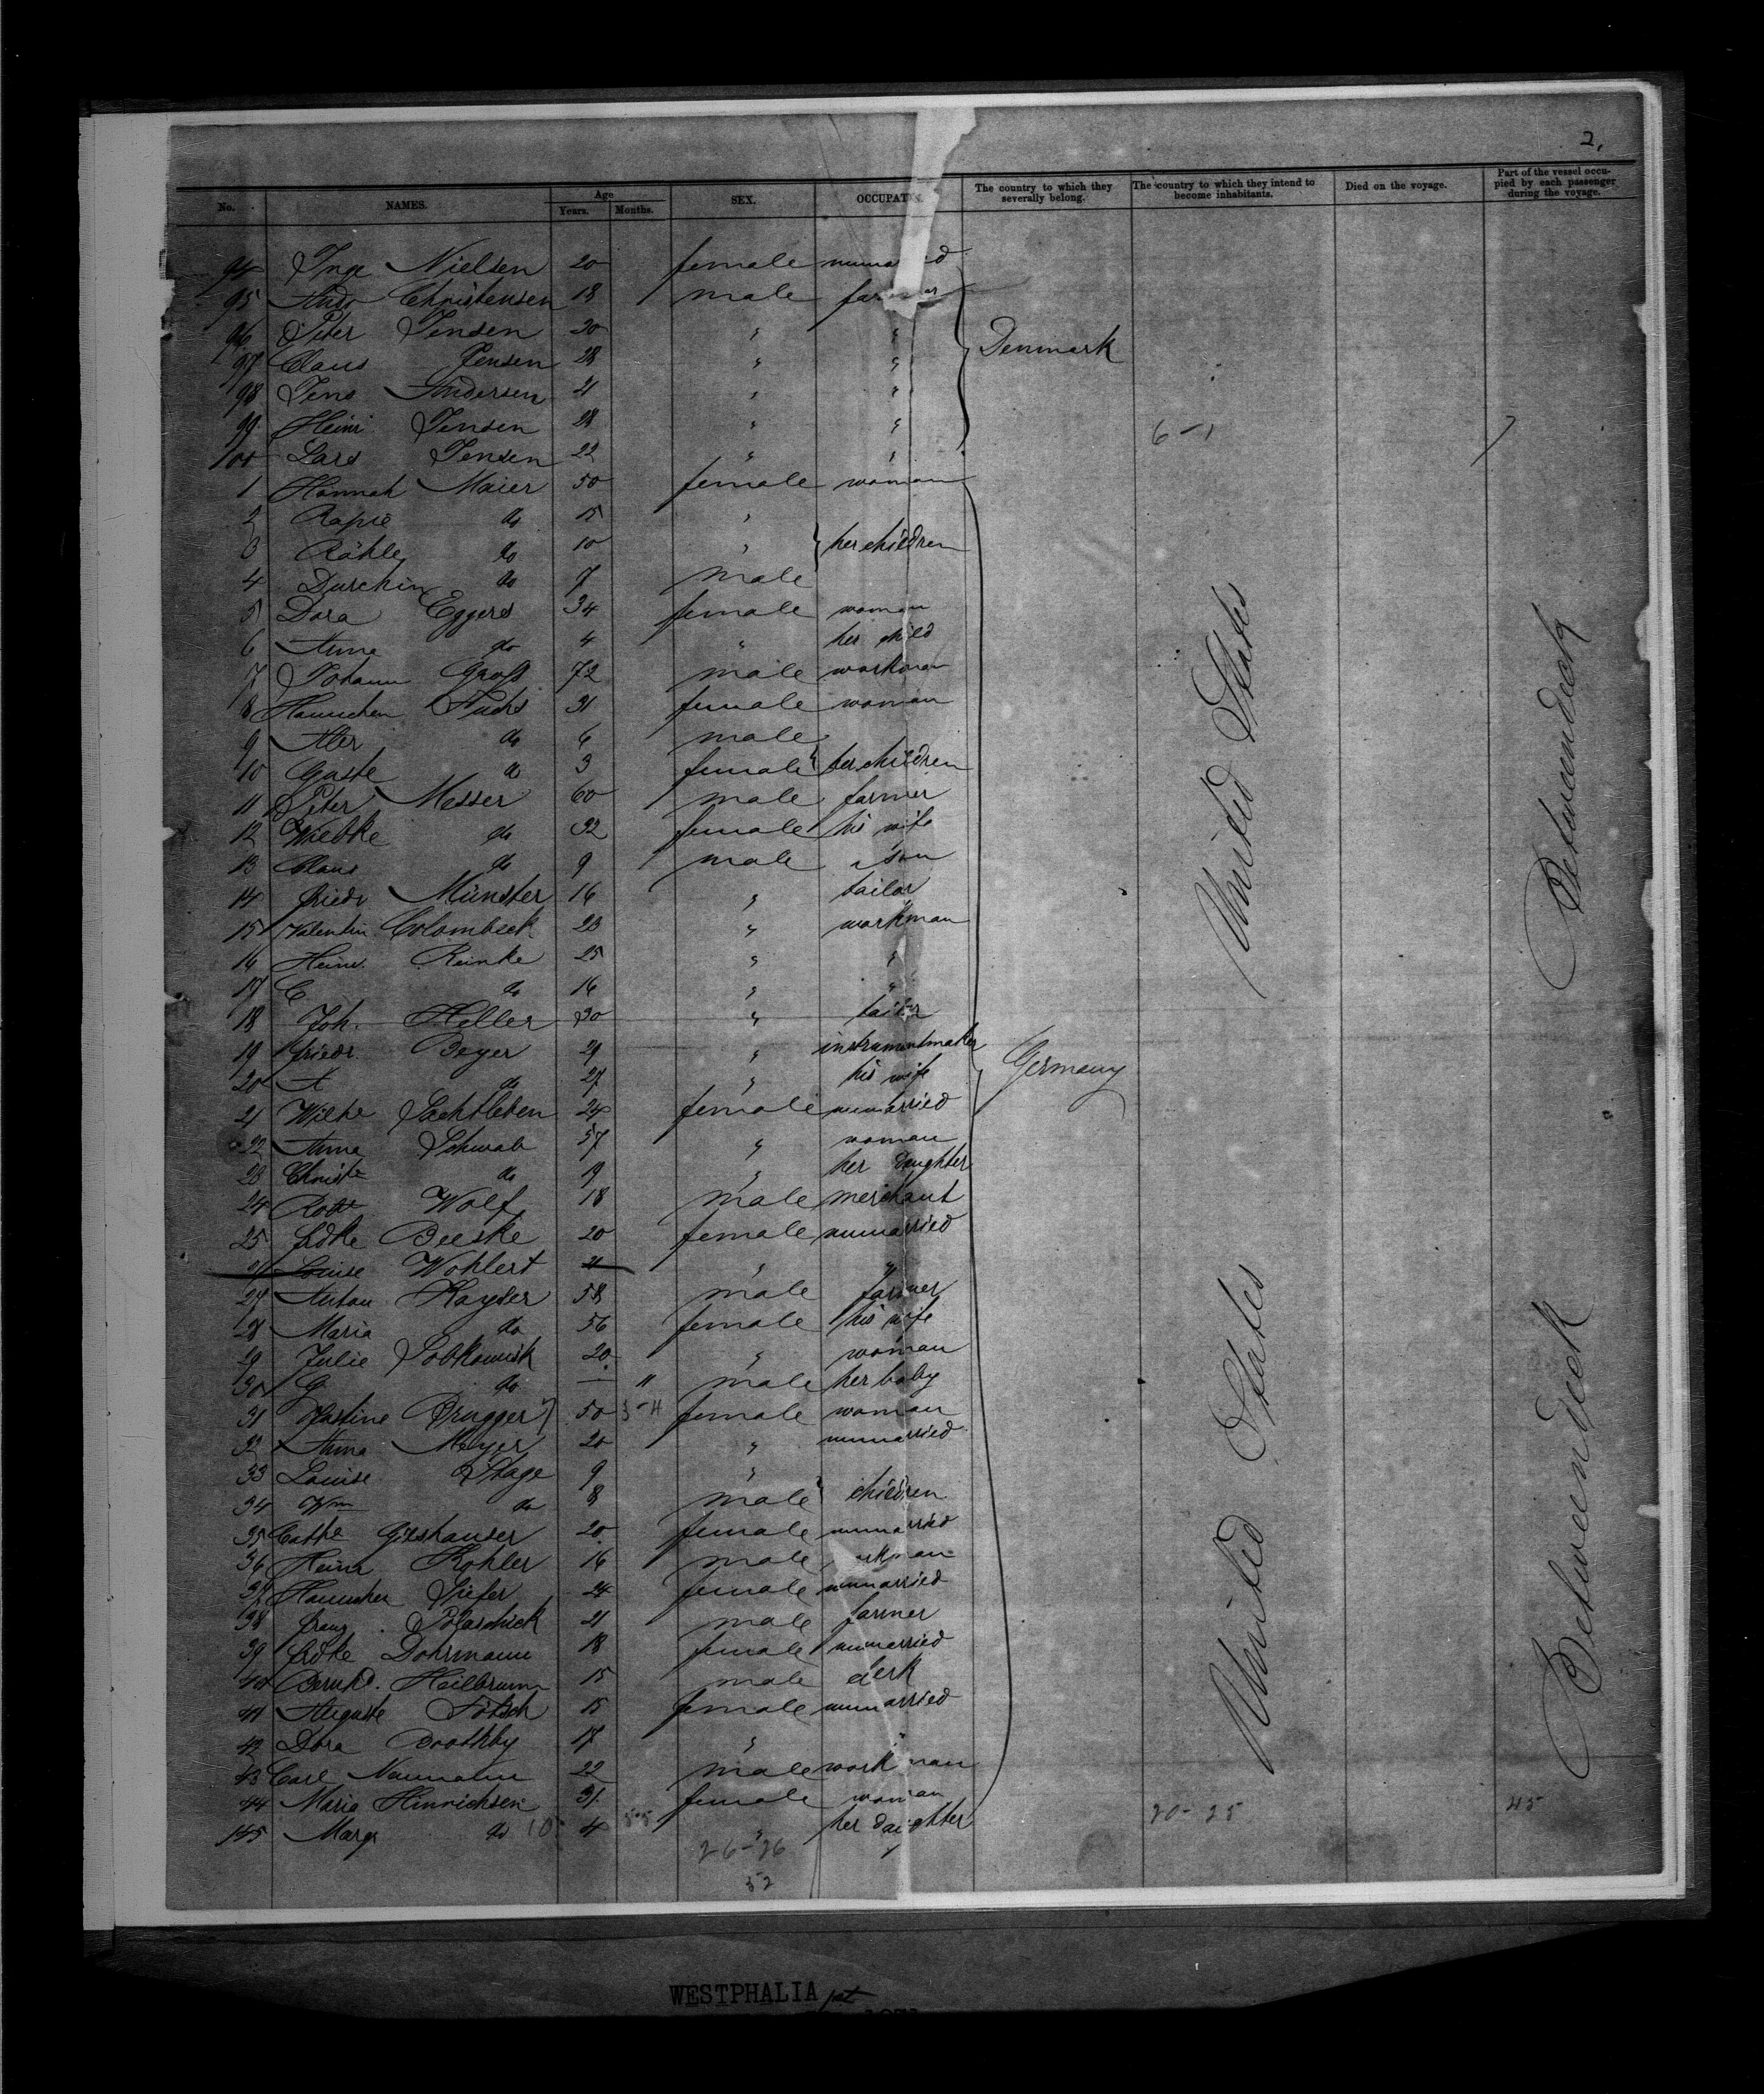 2.
No. NAMES. Age Years. Months. SEX. OCCUPAT The country to which they severally belong. The country to which they intend to become inhabitants. Died on the voyage. Part of the vessel occupied by each passenger during the voyage.
94 Inge Nielsen 20 female
95 Andr Christensen 18 male farmer
96 Peter Jensen 30 " "
97 Claus Jensen 28 " " Denmark
98 Jens Andersen 21 " "
99 Heinr Jensen 28 " " 6-1
100 Lars Jensen 22 " "
1 Hannah Maier 50 female woman
2 do 15 "
3 do 10 " her children
4 do 7 male
5 Dora Eggers 34 female woman
6 Anna do 4 " her child
7 Johann Groß 72 male workman
8 Hannchen Fuchs 31 female woman
9 do 6 male
10 Guste do 3 female her children
11 Peter Messer 60 male farmer
12 Wiebke do 32 female his wife
13 Claus do 9 male " son
14 Friedr Münster 16 " tailor
15 Valentin Colombeck 23 " workman
16 Heinr. Reinke 25 " "
17 C do 16 " "
18 Joh. Heller 30 " tailor
19 Friedr. Beyer 29 " instrumentmaker
20 A do 27 " his wife Germany
21 Wilhe Sachtleben 24 female unmarried
22 Anna Schwab 57 " woman
23 Christe do 19 " her daughter
24 Robt Wolf 18 male merchant
25 Frdke Beeske 20 female unmarried
26 Louise Wohlert 21 " "
27 Anton Kayser 58 male farmer
28 Maria do 56 female his wife
29 Julie 20 " woman
30 G do — 11 male her baby
31 Justine Brugger 50 female woman
32 Anna Meyer 20 " unmarried
33 Louise Stage 9 "
34 Wm do 8 male children
35 Cathe 20 female unmarried
36 Heinr Kohler 16 male
37 Hannchen 24 female unmarried
38 Franz 21 male farmer
39 Frdke Dohrmann 18 female unmarried
40 Bernhd. Heilbrunn 15 male clerk
41 Auguste 15 female unmarried
42 Dora 17 " "
43 Carl Naumann 22 male workman
44 Maria Hinrichsen 31 female woman 20-25 45
145 Marg do 10 4 " her daughter
26-26
52
United States
United States
Betweendeck
Betweendeck
WESTPHALIA